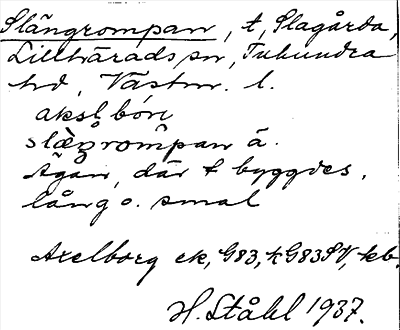 Slängrompan, t, Slagårda,
Lillhärads sn, Tuhundra
hd, Västm. l.
aksl. böri
slæ̀ŋrom̊pan ä.
Ägan, där t byggdes,
lång o. smal
Axelborg ek, G83, k G83 SV, kb.
H. Ståhl 1937.